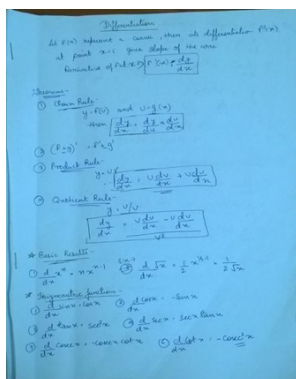 Differentiation
Let f(x) represent a curve, then its differentiation f'(x)
at point x=c gives slope of the curve
Derivative of f at x f'(x) = dy/dx
Theorems -
① Chain Rule -
y = f(u) and u = g(x)
then dy/dx = dy/du × du/dx
② (f ± g)' = f' ± g'
③ Product Rule -
y = uv
dy/dx = u dv/dx + v du/dx
④ Quotient Rule -
y = u/v
dy/dx = v du/dx - u dv/dx / v²
* Basic Results -
① d/dx xⁿ = n xⁿ⁻¹ d/dx √x = 1/2 = 1/2√x
* Trigonometric function -
① d/dx sinx = cosx ② d/dx cosx = -sinx
③ d/dx tanx = sec²x ④ d/dx secx = secx tanx
⑤ d/dx cosecx = -cosecx cotx ⑥ d/dx cotx = -cosec²x